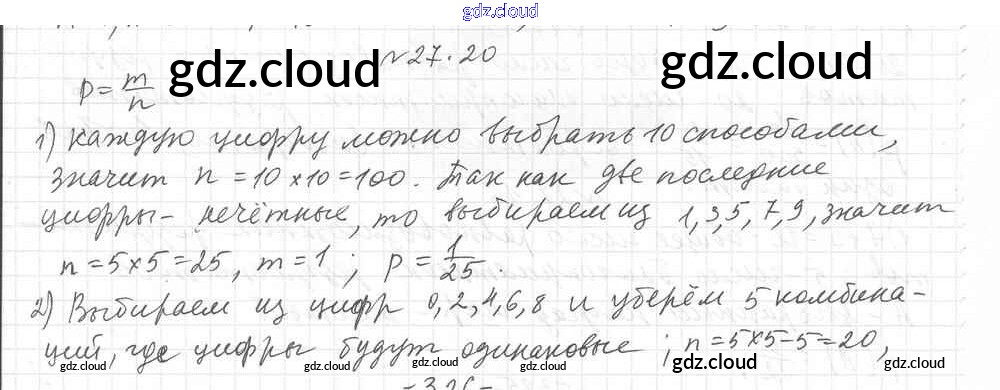 gdz.cloud
№27.20
gdz.cloud gdz.cloud
p = m/n
1) Каждую цифру можно выбрать 10 способами,
значит n = 10 × 10 = 100. Так как две последние
цифры - нечётные, то выбираем из 1,3,5,7,9, значит
n = 5 × 5 = 25, m = 1; p = 1/25.
2) Выбираем из цифр 0,2,4,6,8 и уберём 5 комбина-
ций, где цифры будут одинаковые; n = 5×5-5=20,
gdz.cloud gdz.cloud gdz.cloud gdz.cloud gdz.cloud gdz.cloud gdz.cloud